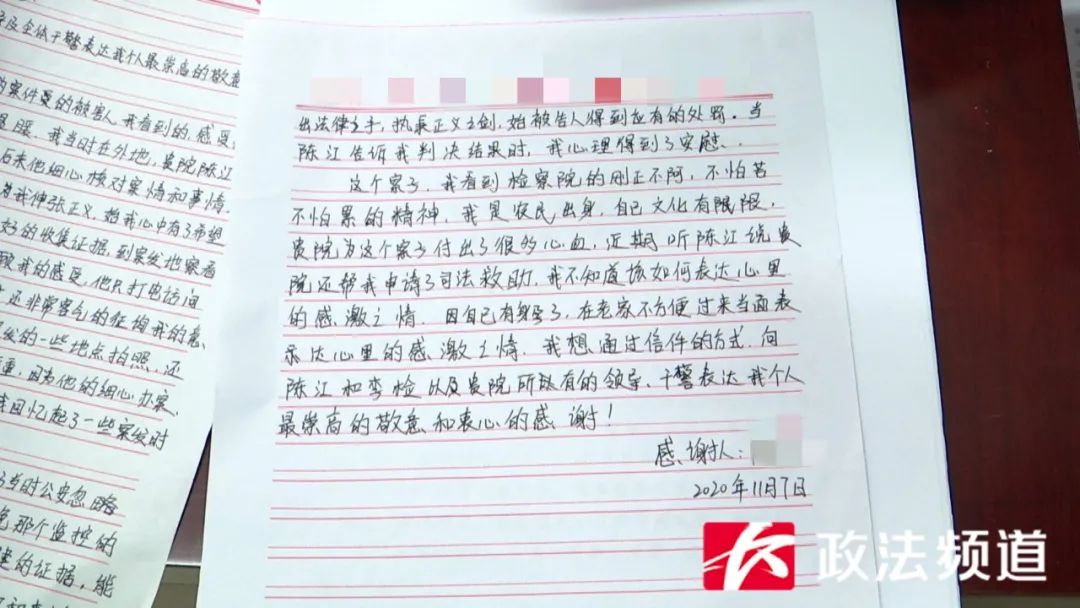 及全体干警表达我个人最崇高的敬意
的案件里的被害人,我看到的,感受
我当时在外地,贵院陈江
后来他细心核对案情和事情
着我伸张正义,给我心中有了希望
好的收集证据,到案发地察看
我的感受,他只打电话问
还非常客气的征询我的意
发的一些地点拍照,还
重,因为他的细心办案、
回忆起了一些案发时
当时公安忽略
那个监控的
的证据,能
出法律之手,执秉正义之剑,始被告人得到应有的处罚。当
陈江告诉我判决结果时,我心理得到了安慰、
这个案子,我看到检察院的刚正不阿,不怕苦
不怕累的精神,我是农民出身,自己文化有限限,
贵院为这个案子付出了很多心血,近期听陈江说贵
院还帮我申请了司法救助,我不知道该如何表达心里
的感激之情,因自己有身孕了,在老家不方便过来当面表
示达心里的感激之情,我想通过信件的方式,向
陈江和李检以及贵院所以有的领导、干警表达我个人
最崇高的敬意和衷心的感谢!
感谢人:
2020年11月7日
政法频道